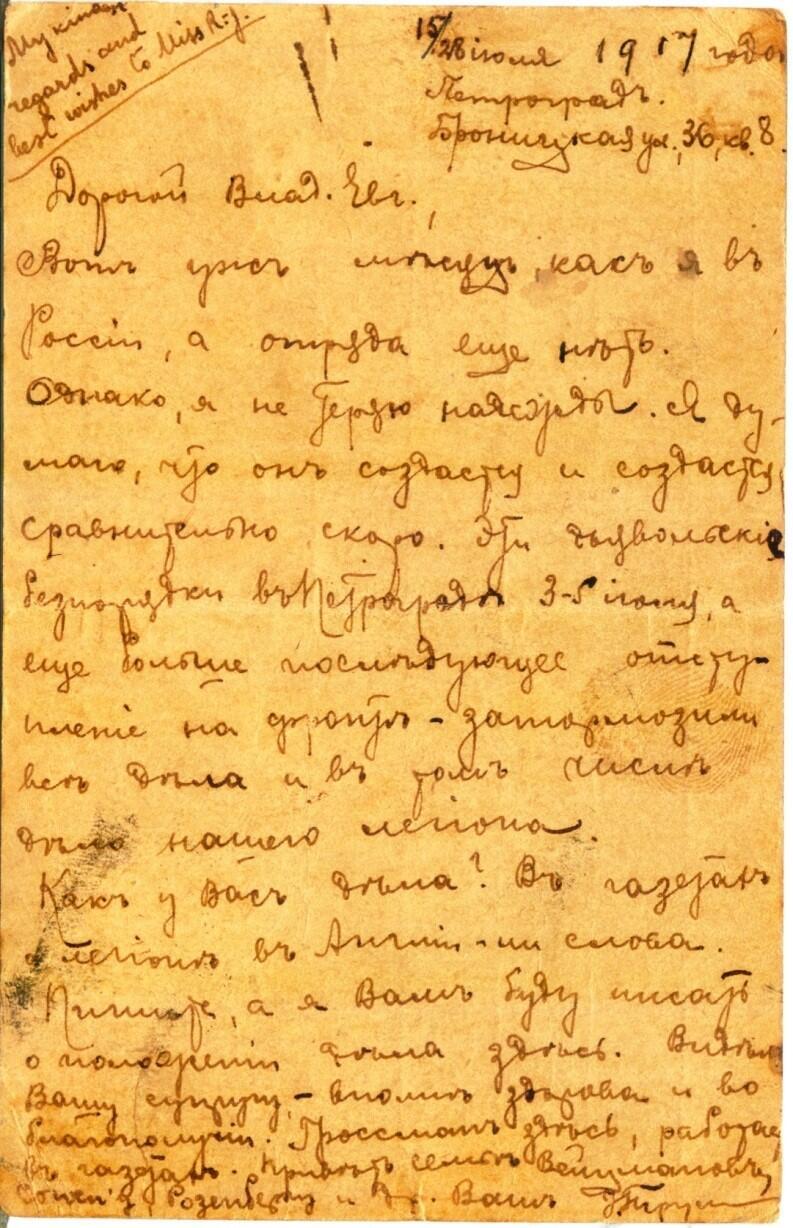 My kindest
regards and
best wishes to Miss R-g.
15/28 іюля 1917 года
Петроградъ.
Броницкая ул., 36, кв. 8.
Дорогой Влад. Евг.,
Вотъ ужъ мѣсяцъ, какъ я въ
Россіи, а отряда еще нѣтъ.
Однако, я не теряю надежды. Я ду-
маю, что онъ создастся и создастся
сравнительно скоро. Эти дьявольскіе
безпорядки въ Петроградѣ 3-5 іюля, а
еще больше послѣдующее отсту-
пленіе на фронтѣ - затормозили
всѣ дѣла и въ томъ числѣ
дѣло нашего легіона.
Какъ у Васъ дѣла? Въ газетахъ
о легіонѣ въ Англіи - ни слова.
Пишите, а я Вамъ буду писать
о положеніи дѣла здѣсь. Видѣлъ
Вашу супругу, - вполнѣ здорова и во
благополучіи. Гроссманъ здѣсь, работаетъ
въ газетахъ. Привѣтъ семьѣ Вейцмановъ,
Розенбергу и др. Вашъ